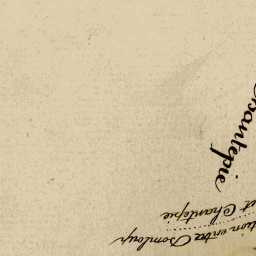 hantepie
tion entre Bomloup
et Chantepie